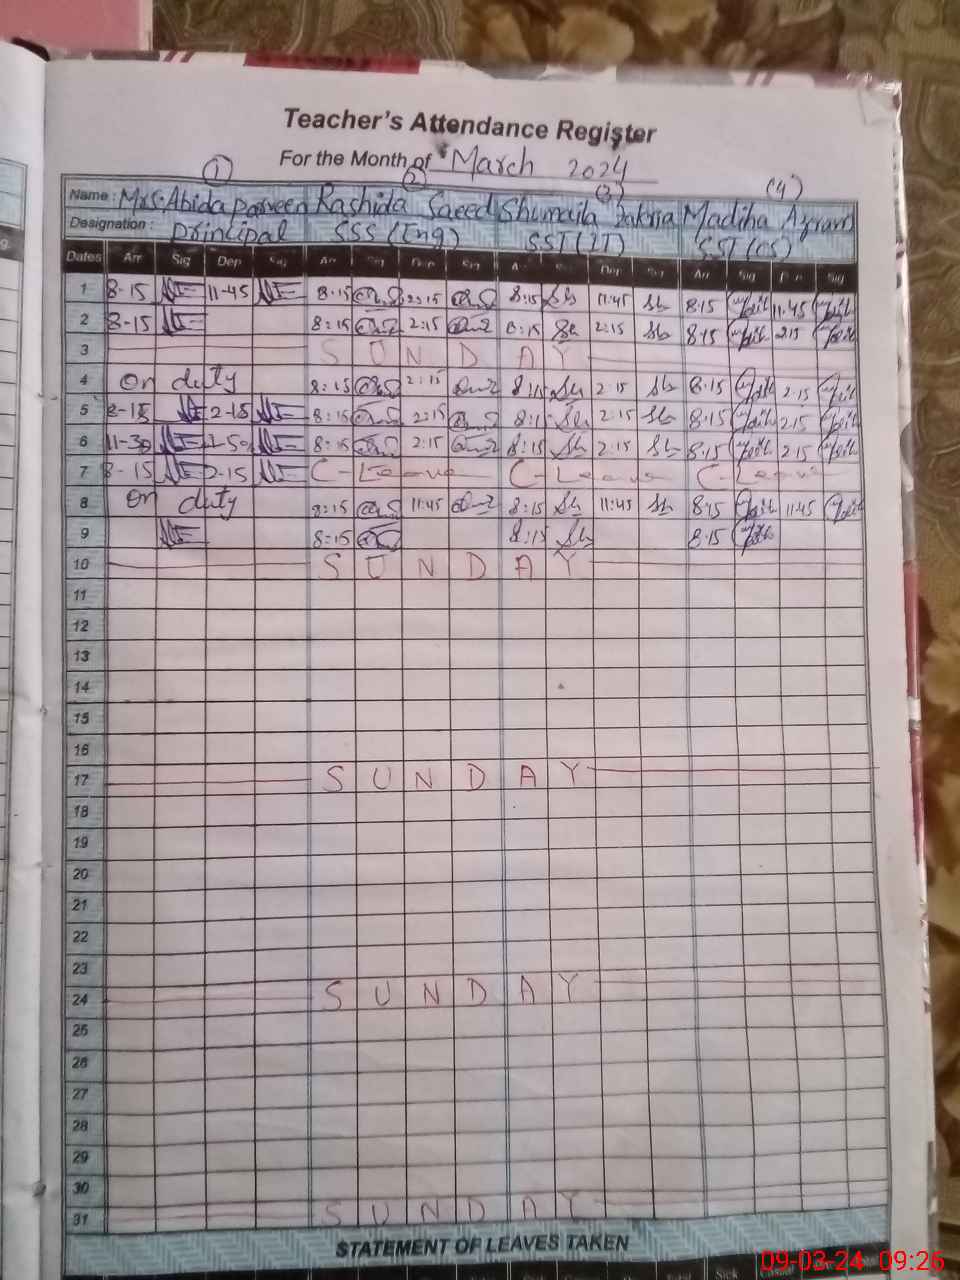 Teacher's Attendance Register
For the Month of March 2024
(1) (2) (3) (4)
Name : Mrs. Abida parveen Rashida Saeed Shumaila Zakria Madiha
Designation : principal SSS (Eng) SST (IT) SST (CS)
Dates Arr Sig Dep Sig Arr Sig Dep Sig Arr Sig Dep Sig Arr Sig Dep Sig
1 8-15 11-45 8:15 2:15 8:15 11:45 8:15 11:45
2 8-15 8:15 2:15 8:15 2:15 8:15 2:15
3 SUNDAY
4 On duty 8:15 2:15 8:15 2:15 8:15 2:15
5 8-15 2-15 8:15 2:15 8:15 2:15 8:15 2:15
6 11-30 1-50 8:15 2:15 8:15 2:15 8:15 2:15
7 8-15 2-15 C-Leave C-Leave C-Leave
8 On duty 8:15 11:45 8:15 11:45 8:15 11:45
9 8:15 8:15 8:15
10 SUNDAY
11
12
13
14
15
16
17 SUNDAY
18
19
20
21
22
23
24 SUNDAY
25
26
27
28
29
30
31 SUNDAY
STATEMENT OF LEAVES TAKEN
09-03-24 09:26